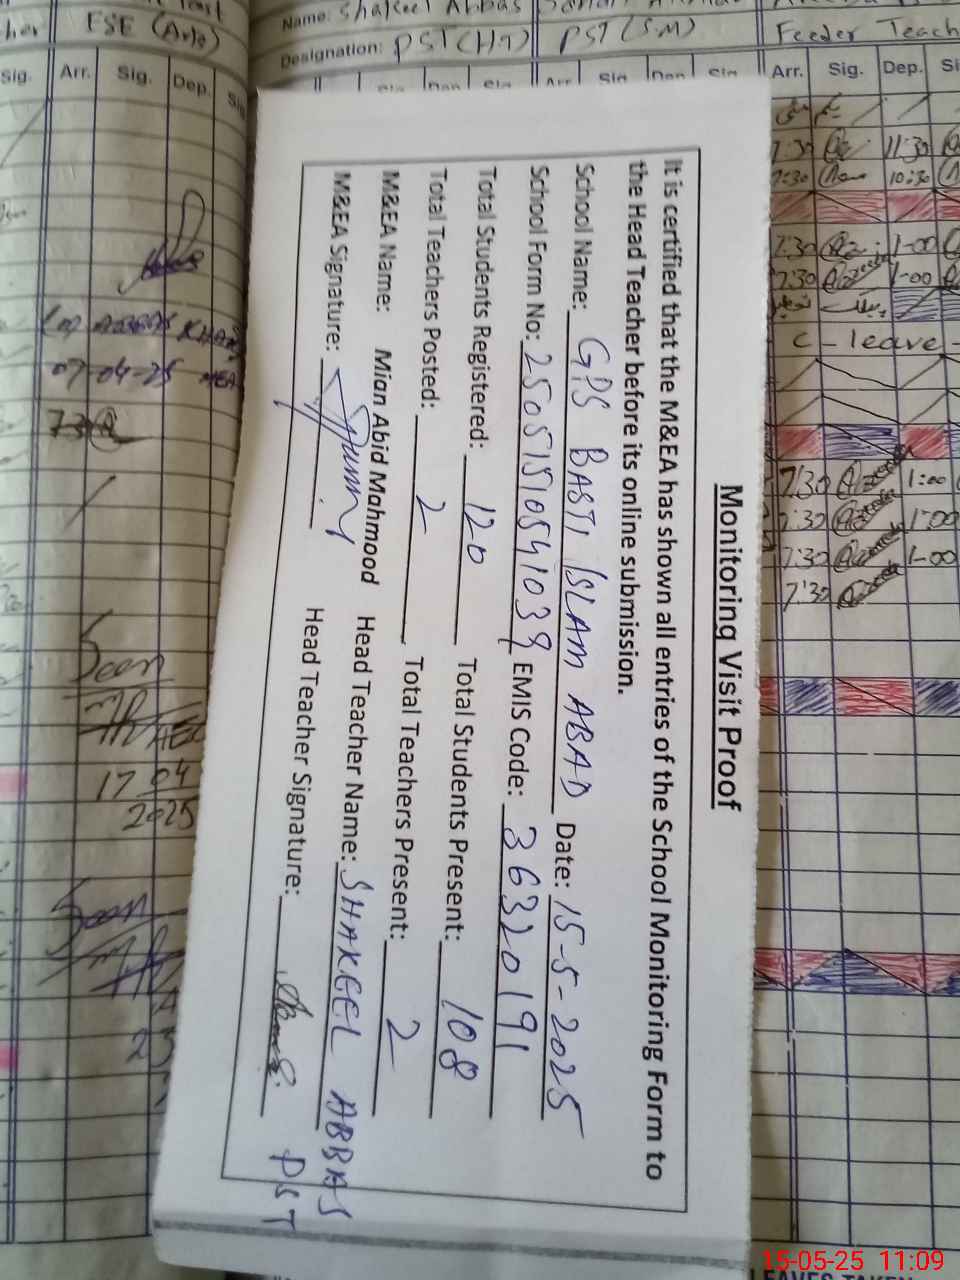 Name: Shakeel Abbas
ESE (Arts)
Designation: PST (HT) PST (SM) Feeder Teach
Sig. Arr. Sig. Dep. Sig
Arr. Sig. Dep. Si
7:30 11:30
7:30 10:30
7:30 1-00
7:30 1-00
C - leave -
7:30 1:00
7:30 1:00
7:30 1-00
7:30
07-04-25
Seen
17 04
2025
Seen
Monitoring Visit Proof
It is certified that the M&EA has shown all entries of the School Monitoring Form to
the Head Teacher before its online submission.
School Name: GPS BASTI ISLAM ABAD Date: 15-5-2025
School Form No: 25051510541039 EMIS Code: 36320191
Total Students Registered: 120 Total Students Present: 108
Total Teachers Posted: 2 Total Teachers Present: 2
M&EA Name: Mian Abid Mahmood Head Teacher Name: SHAKEEL ABBAS
M&EA Signature: Head Teacher Signature: PST
15-05-25 11:09